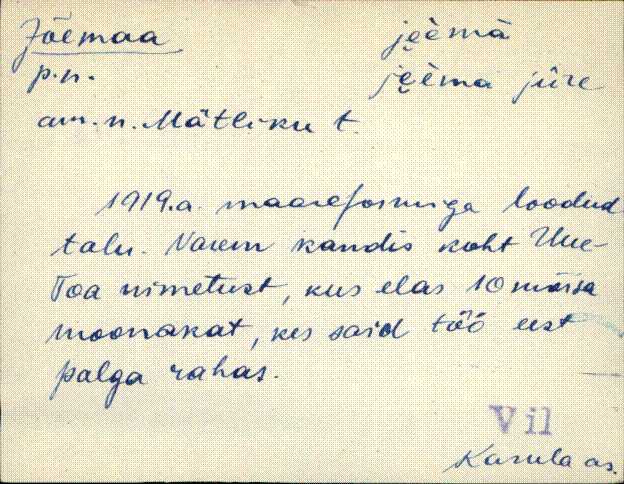 Jõemaa
jẹ̀emä
p.n.
jẹ̀emä jüre
am. n. Mätliku t.
1919.a. maareformiga loodud
talu. Varem kandis koht Uue-
Toa nimetust, kus elas 10 mõisa
moonakat, kes said töö eest
palga rahas.
Vil
Karula as.